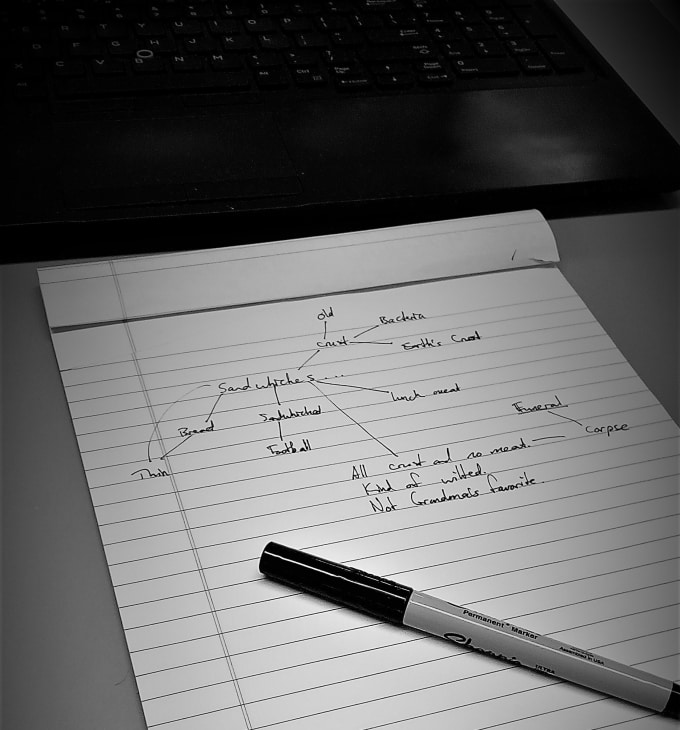 Old
Bacteria
crust
Earth's Crust
Sandwhiches....
lunch meat
Sandwhiched
Funeral
Bread
Corpse
Football
Thin
All crust and no meat.
Kind of wilted.
Not Grandma's favorite.
Permanent Marker
Sharpie
Assembled in USA